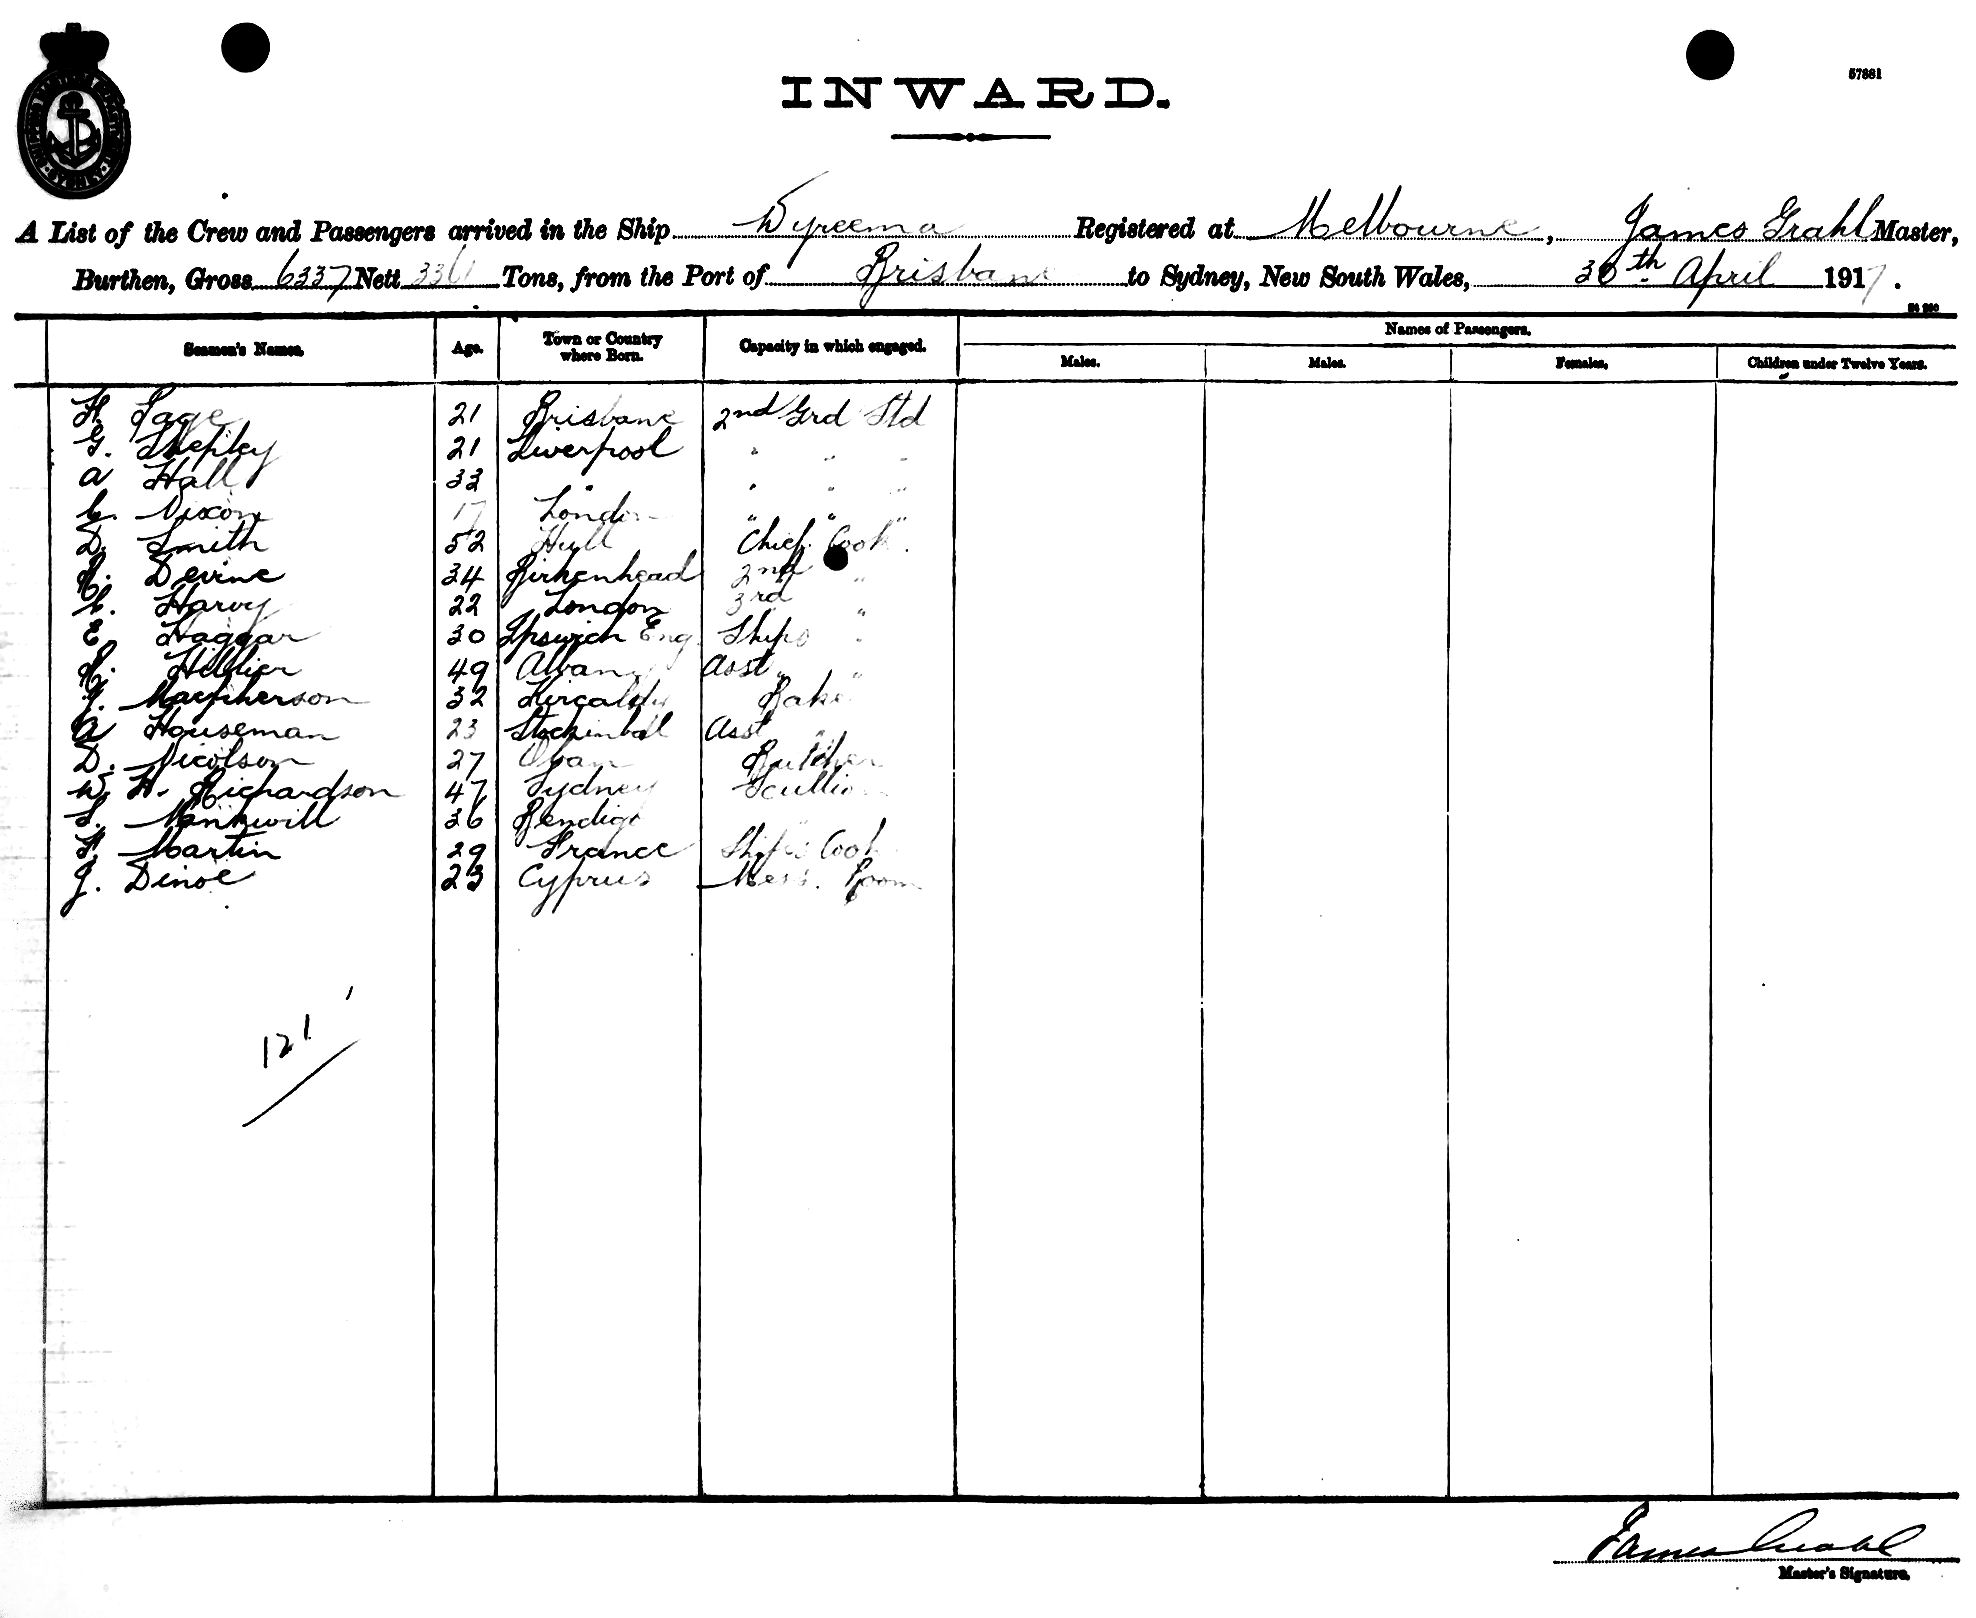 INWARD.
57881
SYDNEY
A List of the Crew and Passengers arrived in the Ship Wyreema Registered at Melbourne, James Grahl Master,
Burthen, Gross 6337 Nett 3361 Tons, from the Port of Brisbane to Sydney, New South Wales, 30th April 1917.
Seamen's Names. Age. Town or Country where Born. Capacity in which engaged. Names of Passengers.
Males. Males. Females. Children under Twelve Years.
H. Page 21 Brisbane 2nd Grd Std
G. Shepley 21 Liverpool " " "
A Hall 33 " " " "
C. Nixon 17 London " " "
D. Smith 52 Hull Chief Cook.
R. Devine 34 Birkenhead 2nd "
C. Harvy 22 London 3rd "
E Haggar 30 Ipswich Eng. Ships "
R. Hillier 49 Albany Asst " "
J. Macpherson 32 Kircaldy Baker
A Houseman 23 Asst "
D. Nicolson 27 Oban Butcher
W. H. Richardson 47 Sydney Scullion
S. Mankwill 36 Bendigo "
H Martin 29 France Ships Cook
J. Dinoe 23 Cyprus Mess. Room
121
James Grahl
Master's Signature.